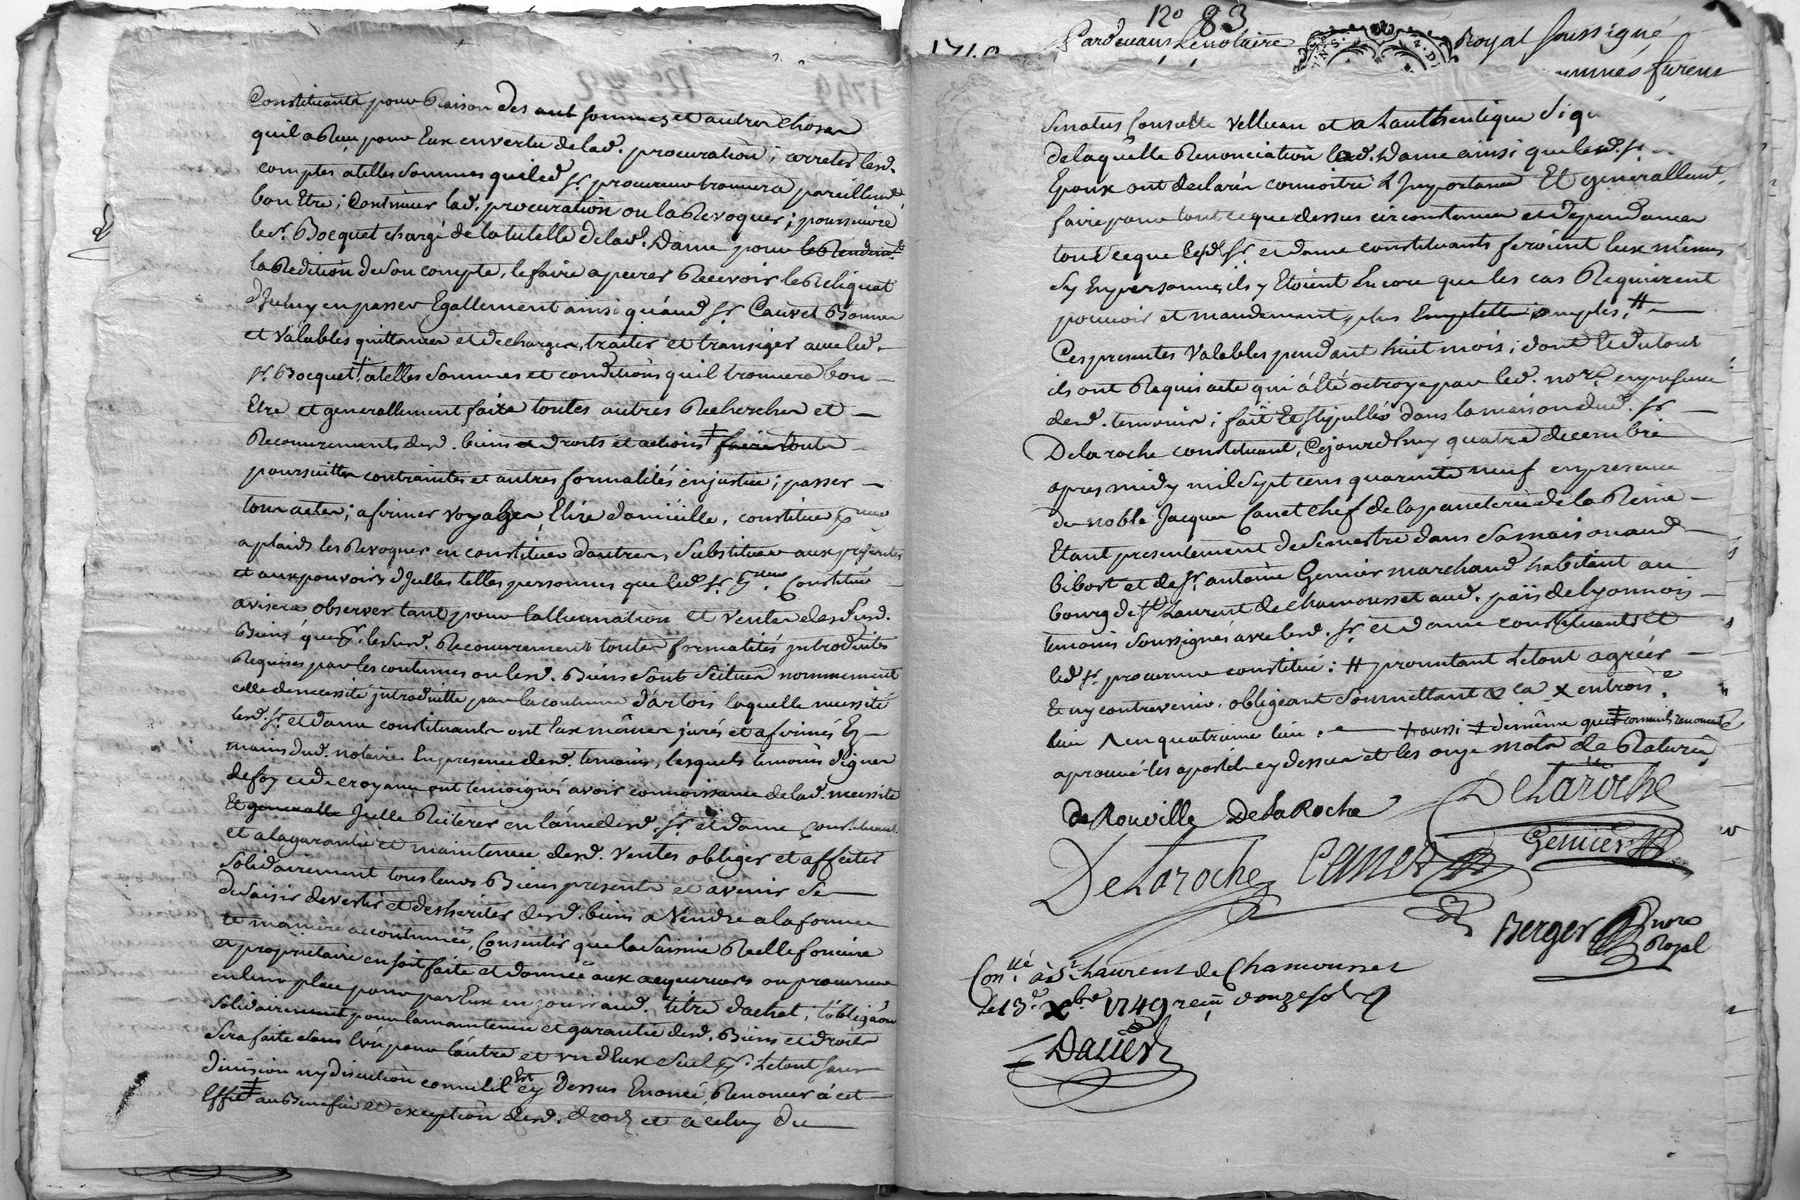 Constituants pour Raison des aut sommes et autres choses
qu'il a Reçu pour Eux en vertu de lad. procuration ; arreter lesd.
comptes a telles sommes que led. Sr. procureur trouvera pareillemt.
bon Etre ; Continuer lad. procuration ou la Revoquer ; poursuivre
le Sr. Bocquet chargé de la tutelle de lad. Dame pour
la Reddition de son compte, le faire apurer Recevoir le Reliquat
d'Iceluy en passer Egallement ainsi qu'aud. Sr. Cauvet Bonnes
et Valables quittances et decharges, traiter et transiger avec led.
Sr. Bocquet a telles sommes et conditions qu'il trouvera bon
Etre et generallement faire toutes autres Recherches et
Recouvrements desd. biens droits et actions faire toute
poursuittes contraintes et autres formalités en justice ; passer
tous actes ; afirmer voyages, Elire domicille, constituer
a plaids les Revoquer en constituer d'autres, Substituer aux presentes
et aux pouvoirs d'Icelles telles personnes que led. Sr. constitué
avisera observer tant pour l'allienation et Ventes desd.
Biens que lesd. Recouvrements toutes formalités introduites
Requises par les coutumes ou lesd. Biens sont Scitues nommement
celle de necessité introduitte par la coutume d'artois laquelle necessité
lesd. Sr. et dame constituants ont Eux mêmes jurés et afirmés Es
mains dud. notaire En presence desd. temoins, lesquels temoins dignes
de foy et de croyance ont temoignés avoir connoissance de lad. necessité
Et generalle Icelle Reiterer en l'ame desd. Sr. et dame constituants
et a la garantie et maintenue desd. Ventes obliger et affecter
solidairement tous leurs Biens presents et avenir se
desaisir devestir et desheriter desd. biens a Vendre a la forme
et maniere accoutumée, Consentir que la saisine Reelle fonciere
et proprietaire en soit faite et donnée aux acquereurs ou procureur
en leur place pour par Eux en jouir aud. titre d'achat, l'obligaôn
solidairement pour la maintenue et garantie desd. Biens et droits
sera faite dans l'un pour l'autre et un d'Eux seul pr. Le tout sans
division ny discution comme il Est cy Dessus Enoncé, Renoncer à cet
Effet au Benefice et exception desd. droits et a celuy du
No 83
Pardevant Le notaire Royal soussigné
furent
Senatus Consulte Velleian et a L'authentique Si qu
de laquelle Renonciation lad. Dame ainsi que led. Sr.
Epoux ont declarés connoitre L'Importance Et generallemt.
faire pour tout ce que dessus circonstances et dependances
tout ce que lesd. Sr. et dame constituants feroient Eux mêmes
sy En personnes ils y Etoient Encore que les cas Requierent
pouvoir et mandement plus amples, #
Ces presentes Valables pendant huit mois ; dont Et du tout
ils ont Requis acte qui a Eté octroyé par led. nore. en presence
desd. temoins ; fait Et stipullés dans la maison dud. Sr.
Delaroche constituant, Cejourd'huy quatre decembre
apres midy mil sept cens quarante neuf en presence
de noble Jacques Canet chef de la paneterie de la Reine
Etant presentement de Semestre dans sa maison aud.
bibost et de Sr. antoine Gernier marchand habitant au
bourg de St. Laurent de chamousset aud. païs de lyonnois
temoins soussignés avec lesd. Sr. et dame constituants et
led. Sr. procureur constitué : # promettant Le tout agréer
Et n'y contrevenir, obligeant soumettant & ca X en trois.e
lieu en quatrieme lieu. aussi de même que
aprouvé les apostiles cy dessus et les onze mots de Raturés
de Rouville DeLaRoche DeLaroche
DeLaroche Canet Gernier
Berger nore
Royal
Conllé à St. Laurent de Chamousset
le 13e. Xbre 1749 reçu douze sols